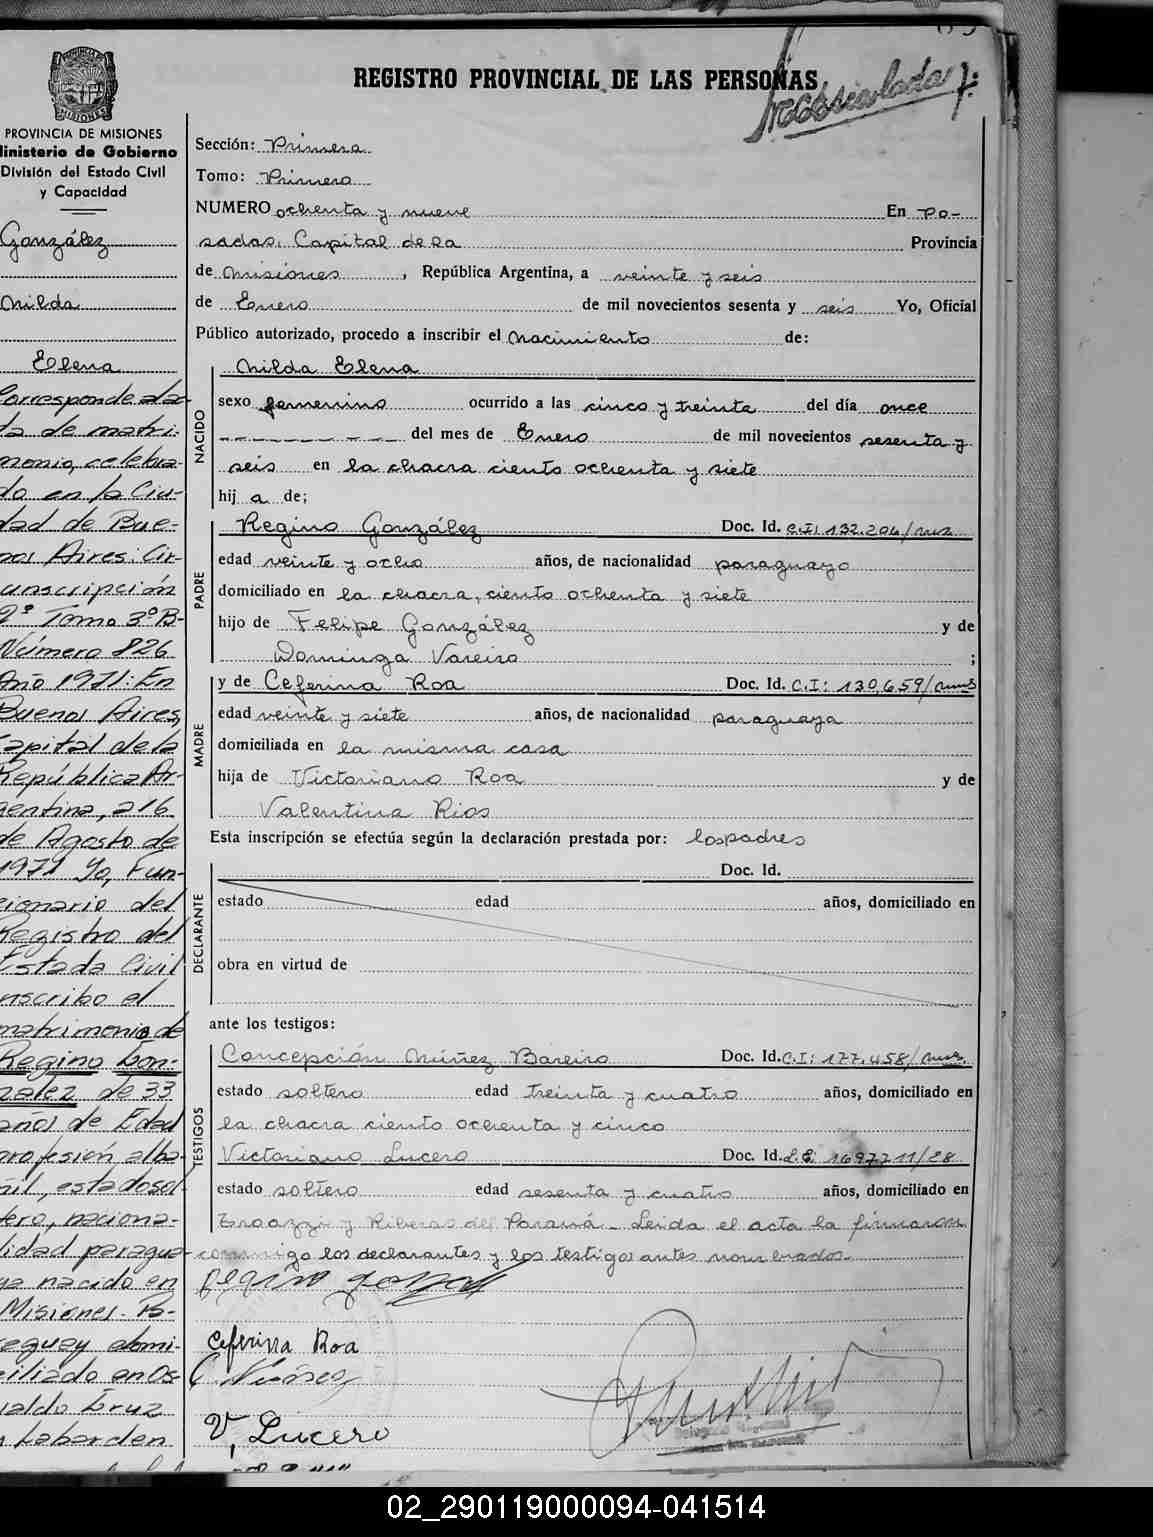 REGISTRO PROVINCIAL DE LAS PERSONAS
PROVINCIA DE MISIONES
Ministerio de Gobierno
División del Estado Civil
y Capacidad
González
Nilda
Elena
Corresponde al ac-
ta de matri-
monio celebra-
do en la Ciu-
dad de Bue-
nos Aires: Cir-
cunscripción
2º Tomo 3º B-
Número 826
Año 1971: En
Buenos Aires,
Capital de la
República Ar-
gentina, a 16
de Agosto de
1971 Yo, Fun-
cionario del
Registro del
Estado Civil
inscribo el
matrimonio de
Regino Gon-
zález de 33
años de Edad
profesión alba-
ñil, estado sol-
tero, naciona-
lidad paragua-
ya nacido en
Misiones. Pa-
raguay domi-
ciliado en Os-
valdo Cruz
y Labarden
Sección: Primera
Tomo: Primero
NUMERO ochenta y nueve En Po-
sadas, Capital de la Provincia
de Misiones, República Argentina, a veinte y seis
de Enero de mil novecientos sesenta y seis Yo, Oficial
Público autorizado, procedo a inscribir el Nacimiento de:
NACIDO
Nilda Elena
sexo femenino ocurrido a las cinco y treinta del día once
del mes de Enero de mil novecientos sesenta y
seis en la chacra ciento ochenta y siete
hij a de;
PADRE
Regino González Doc. Id. C.I: 132.204/
edad veinte y ocho años, de nacionalidad paraguayo
domiciliado en la chacra, ciento ochenta y siete
hijo de Felipe González y de
Dominga Vareiro ;
MADRE
y de Ceferina Roa Doc. Id. C.I: 130,659/
edad veinte y siete años, de nacionalidad paraguaya
domiciliada en la misma casa
hija de Victoriano Roa y de
Valentina Rios
Esta inscripción se efectúa según la declaración prestada por: los padres
DECLARANTE
Doc. Id.
estado edad años, domiciliado en
obra en virtud de
ante los testigos:
TESTIGOS
Concepción Núñez Bareiro Doc. Id. C.I: 177.458/
estado soltero edad treinta y cuatro años, domiciliado en
la chacra ciento ochenta y cinco
Victoriano Lucero Doc. Id. L.E: 1697711/28
estado soltero edad sesenta y cuatro años, domiciliado en
y Riberas del Paraná. Leida el acta la firmaron
conmigo los declarantes y los testigos antes nombrados.
Ceferina Roa
C. Núñez
V, Lucero
02_290119000094-041514